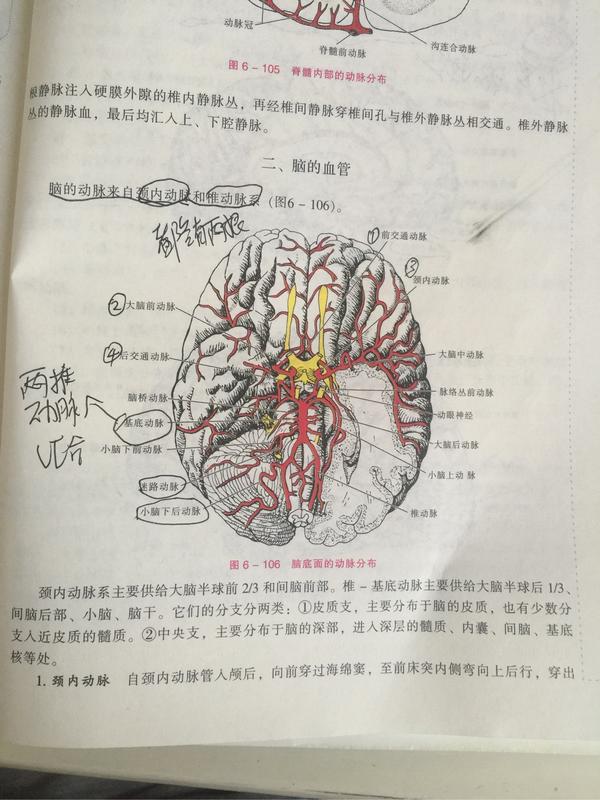 动脉冠
脊髓前动脉
沟连合动脉
图 6－105 脊髓内部的动脉分布
根静脉注入硬膜外隙的椎内静脉丛，再经椎间静脉穿椎间孔与椎外静脉丛相交通。椎外静脉
丛的静脉血，最后均汇入上、下腔静脉。
二、脑的血管
脑的动脉来自颈内动脉和椎动脉系（图6－106）。
都各有两根
①前交通动脉
③颈内动脉
②大脑前动脉
④后交通动脉
大脑中动脉
两推
动脉
汇合
脑桥动脉
脉络丛前动脉
基底动脉
动眼神经
小脑下前动脉
大脑后动脉
小脑上动 脉
迷路动脉
小脑下后动脉
椎动脉
图 6－106 脑底面的动脉分布
颈内动脉系主要供给大脑半球前 2/3 和间脑前部。椎－基底动脉主要供给大脑半球后 1/3、
间脑后部、小脑、脑干。它们的分支分两类：①皮质支，主要分布于脑的皮质，也有少数分
支入近皮质的髓质。②中央支，主要分布于脑的深部，进入深层的髓质、内囊、间脑、基底
核等处。
1. 颈内动脉 自颈内动脉管入颅后，向前穿过海绵窦，至前床突内侧弯向上后行，穿出